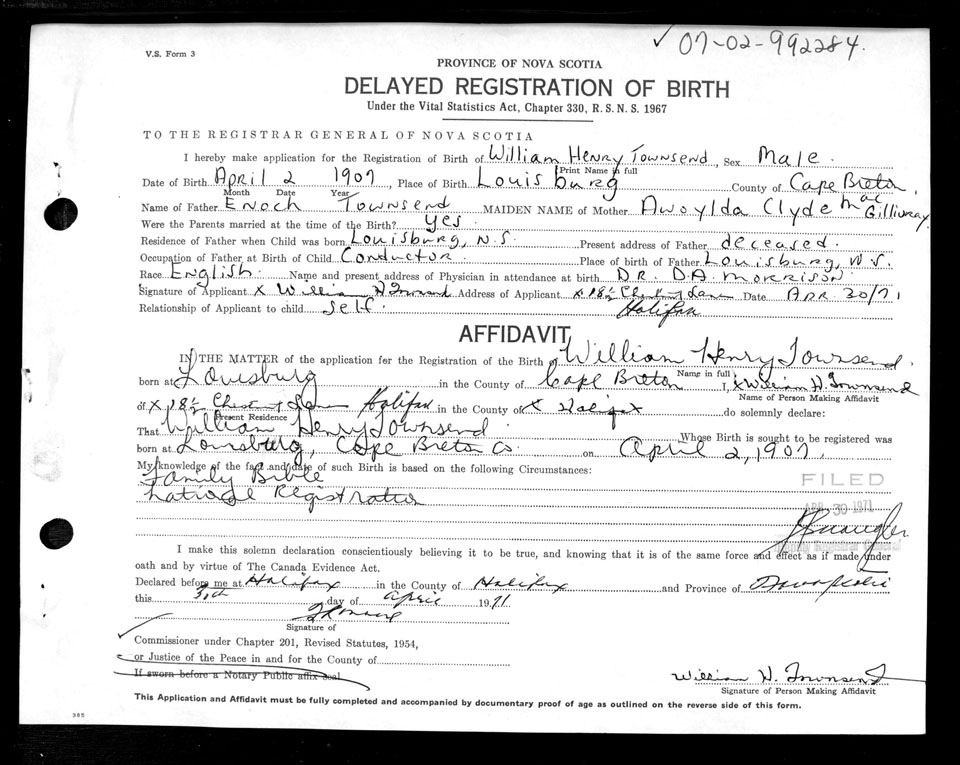 ✓ 07-02-992284.
V.S. Form 3
PROVINCE OF NOVA SCOTIA
DELAYED REGISTRATION OF BIRTH
Under the Vital Statistics Act, Chapter 330, R.S.N.S. 1967
TO THE REGISTRAR GENERAL OF NOVA SCOTIA
I hereby make application for the Registration of Birth of William Henry Townsend, Sex Male.
Print Name in full
Date of Birth April 2 1907, Place of Birth Louisburg County of Cape Breton,
Month Date Year
Name of Father Enoch Townsend MAIDEN NAME of Mother Awoylda Clyde Mac Gillivray
Were the Parents married at the time of the Birth? Yes.
Residence of Father when Child was born Louisburg, N.S. Present address of Father deceased.
Occupation of Father at Birth of Child Conductor. Place of birth of Father Louisburg, N.S.
Race English. Name and present address of Physician in attendance at birth DR. D.A. MORRISON.
Signature of Applicant X William H Townsend Address of Applicant X 18½ Lane Date APR 30/71
Halifax
Relationship of Applicant to child self.
AFFIDAVIT
IN THE MATTER of the application for the Registration of the Birth of William Henry Townsend.
Name in full
born at Louisburg in the County of Cape Breton I, X William H. Townsend
Name of Person Making Affidavit
of X 18½ Lane Halifax in the County of X Halifax do solemnly declare:
Present Residence
That William Henry Townsend Whose Birth is sought to be registered was
born at Louisburg, Cape Breton Co on April 2, 1907.
My knowledge of the fact and date of such Birth is based on the following Circumstances:
Family Bible
National Registration
FILED
APR 30 1971
I make this solemn declaration conscientiously believing it to be true, and knowing that it is of the same force and effect as if made under
oath and by virtue of The Canada Evidence Act.
Declared before me at Halifax in the County of Halifax and Province of Nova Scotia
this 30th day of April 1971
Signature of
Commissioner under Chapter 201, Revised Statutes, 1954,
or Justice of the Peace in and for the County of
If sworn before a Notary Public affix seal
William H. Townsend
Signature of Person Making Affidavit
This Application and Affidavit must be fully completed and accompanied by documentary proof of age as outlined on the reverse side of this form.
385